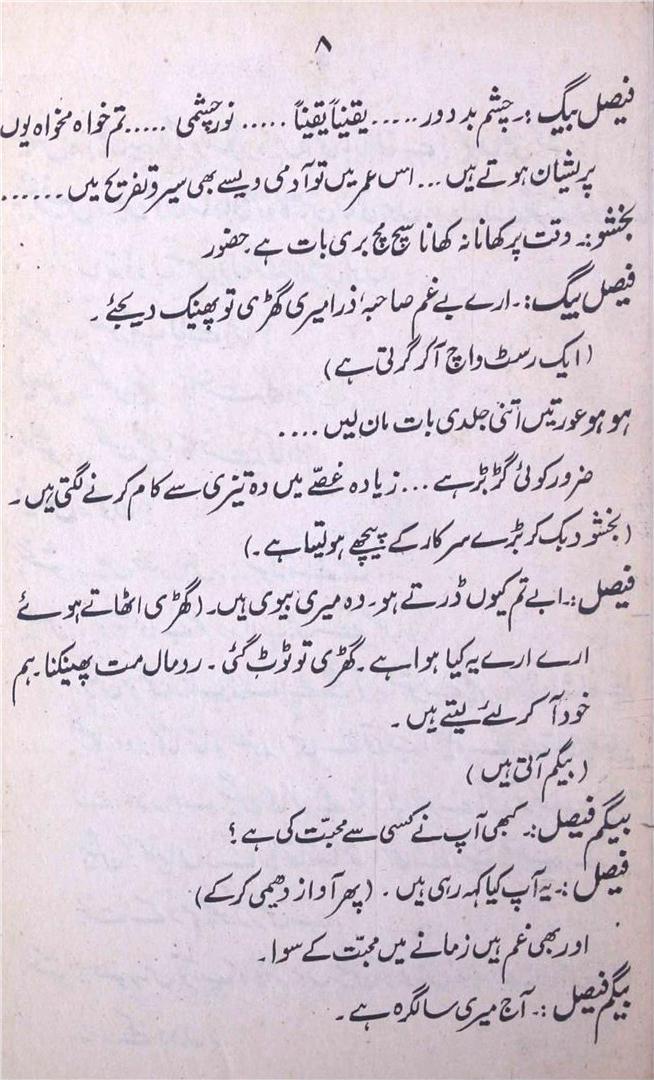 ۸
فیصل بیگ :۔ چشم بد دور ..... یقیناً یقیناً ..... نور چشمی ..... تم خواہ مخواہ یوں
پریشان ہوتے ہیں ... اس عمر میں تو آدمی ویسے بھی سیر و تفریح میں ......
بخشو :۔ وقت پر کھانا نہ کھانا سچ مچ بری بات ہے حضور
فیصل بیگ :۔ ارے بے غم صاحبہ ذرا میری گھڑی تو پھینک دیجئے ۔
(ایک رسٹ واچ آکر گرتی ہے)
ہو ہو عورتیں اتنی جلدی بات مان لیں ....
ضرور کوئی گڑبڑ ہے ... زیادہ غصّے میں وہ تیزی سے کام کرنے لگتی ہیں ۔
(بخشو دبک کر بڑے سرکار کے پیچھے ہولیتا ہے ۔)
فیصل :۔ ابے تم کیوں ڈرتے ہو۔ وہ میری بیوی ہیں۔ (گھڑی اٹھاتے ہوئے
ارے ارے یہ کیا ہوا ہے ۔ گھڑی تو ٹوٹ گئی ۔ رومال مت پھینکنا۔ ہم
خود آکر لئے لیتے ہیں ۔
(بیگم آتی ہیں )
بیگم فیصل :۔ کبھی آپ نے کسی سے محبّت کی ہے ؟
فیصل :۔ یہ آپ کیا کہہ رہی ہیں ۔ (پھر آواز دھیمی کرکے)
اور بھی غم ہیں زمانے میں محبّت کے سوا ۔
بیگم فیصل :۔ آج میری سالگرہ ہے ۔